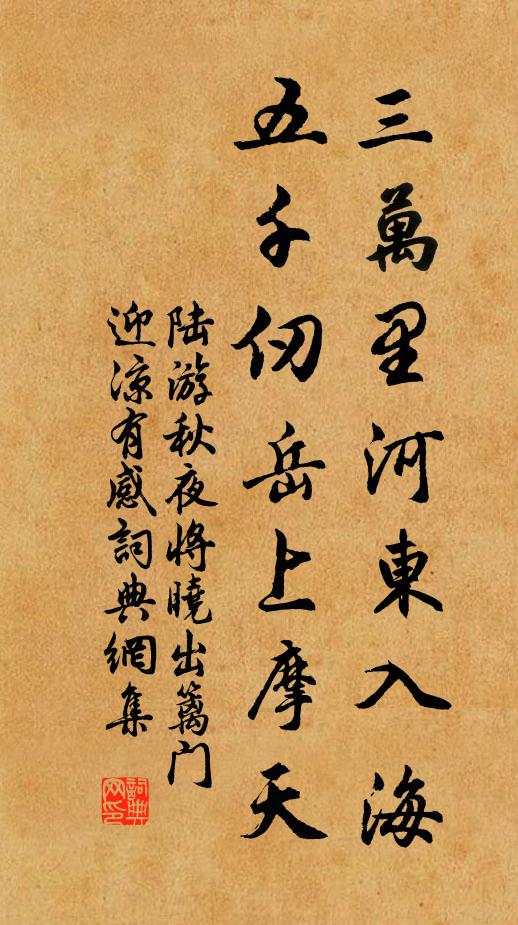 三萬里河東入海
五千仞岳上摩天
陆游秋夜将曉出篱门
迎涼有感詞典網集
詞典
网印